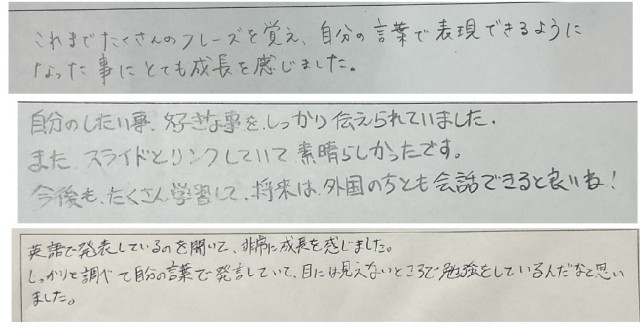 これまでたくさんのフレーズを覚え、自分の言葉で表現できるように
なった事にとても成長を感じました。
自分のしたい事、好きな事を、しっかり伝えられていました.
また、スライドとリンクしていて素晴らしかったです。
今後も、たくさん学習して、将来は、外国の方とも会話できると良いね!
英語で発表しているのを聞いて、非常に成長を感じました。
しっかりと調べて自分の言葉で発言していて、目には見えないところで勉強をしているんだなと思い
ました。